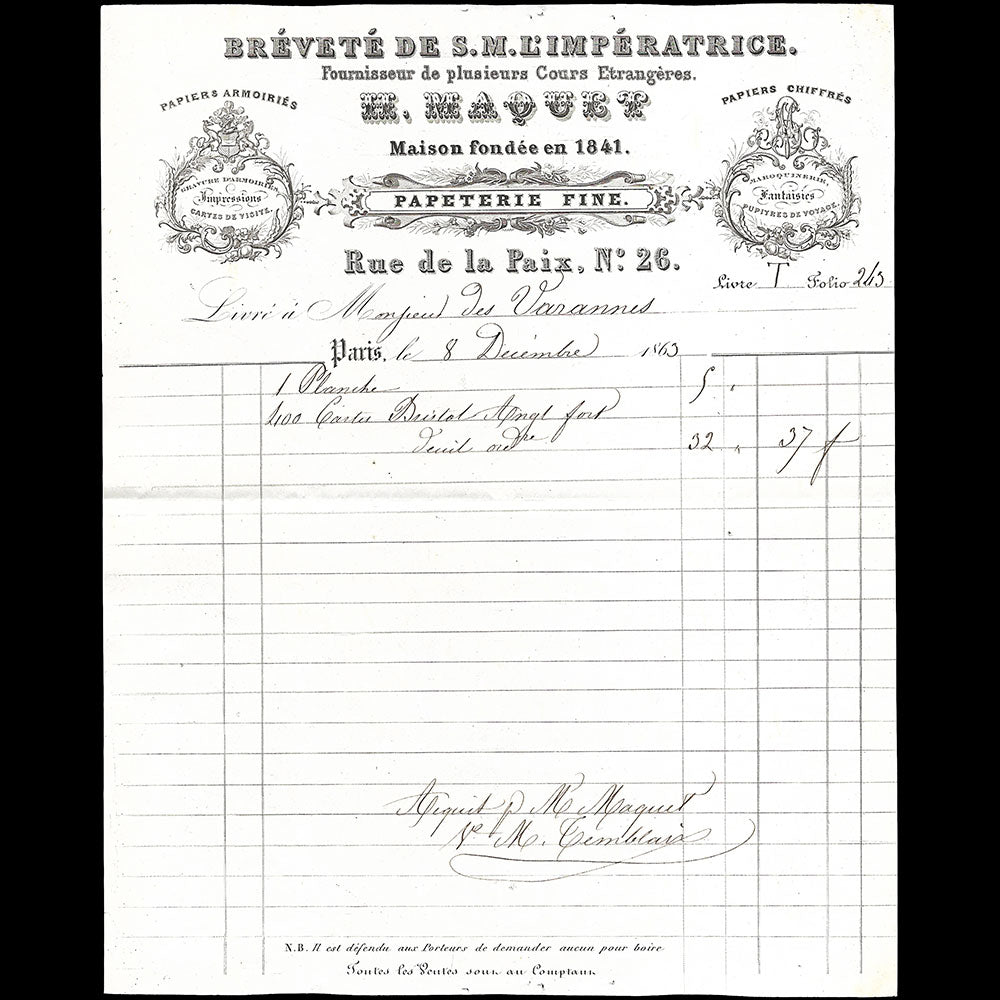 BRÉVETÉ DE S.M. L'IMPÉRATRICE.
Fournisseur de plusieurs Cours Etrangères.
H. MAQUET
Maison fondée en 1841.
PAPETERIE FINE.
Rue de la Paix, No. 26.
PAPIERS ARMOIRIÉS
GRAVURE D'ARMOIRIES,
Impressions
CARTES DE VISITE.
PAPIERS CHIFFRÉS
MAROQUINERIE,
Fantaisies
PUPITRES DE VOYAGE.
Livre T Folio 243
Livré à Monsieur des Varannes
Paris, le 8 Décembre 1863
1 Planche 5 "
400 Cartes Bristol Angl fort
deuil ordre 32 " 37 f
Acquit p M Maquet
Ve M. Temblaix
N.B. Il est défendu aux Porteurs de demander aucun pour boire.
Toutes les Ventes sont au Comptant